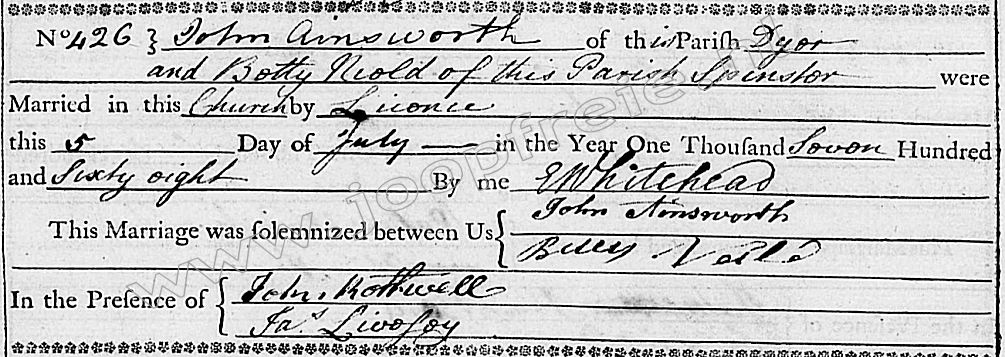 No 426 } John Ainsworth of this Parish Dyer
and Betty Nield of this Parish Spinster were
Married in this Church by Licence
this 5 Day of July in the Year One Thousand Seven Hundred
and Sixty eight By me E Whitehead
This Marriage was solemnized between Us { John Ainsworth
Betty Neild
In the Presence of { John Rothwell
Jas Livesey